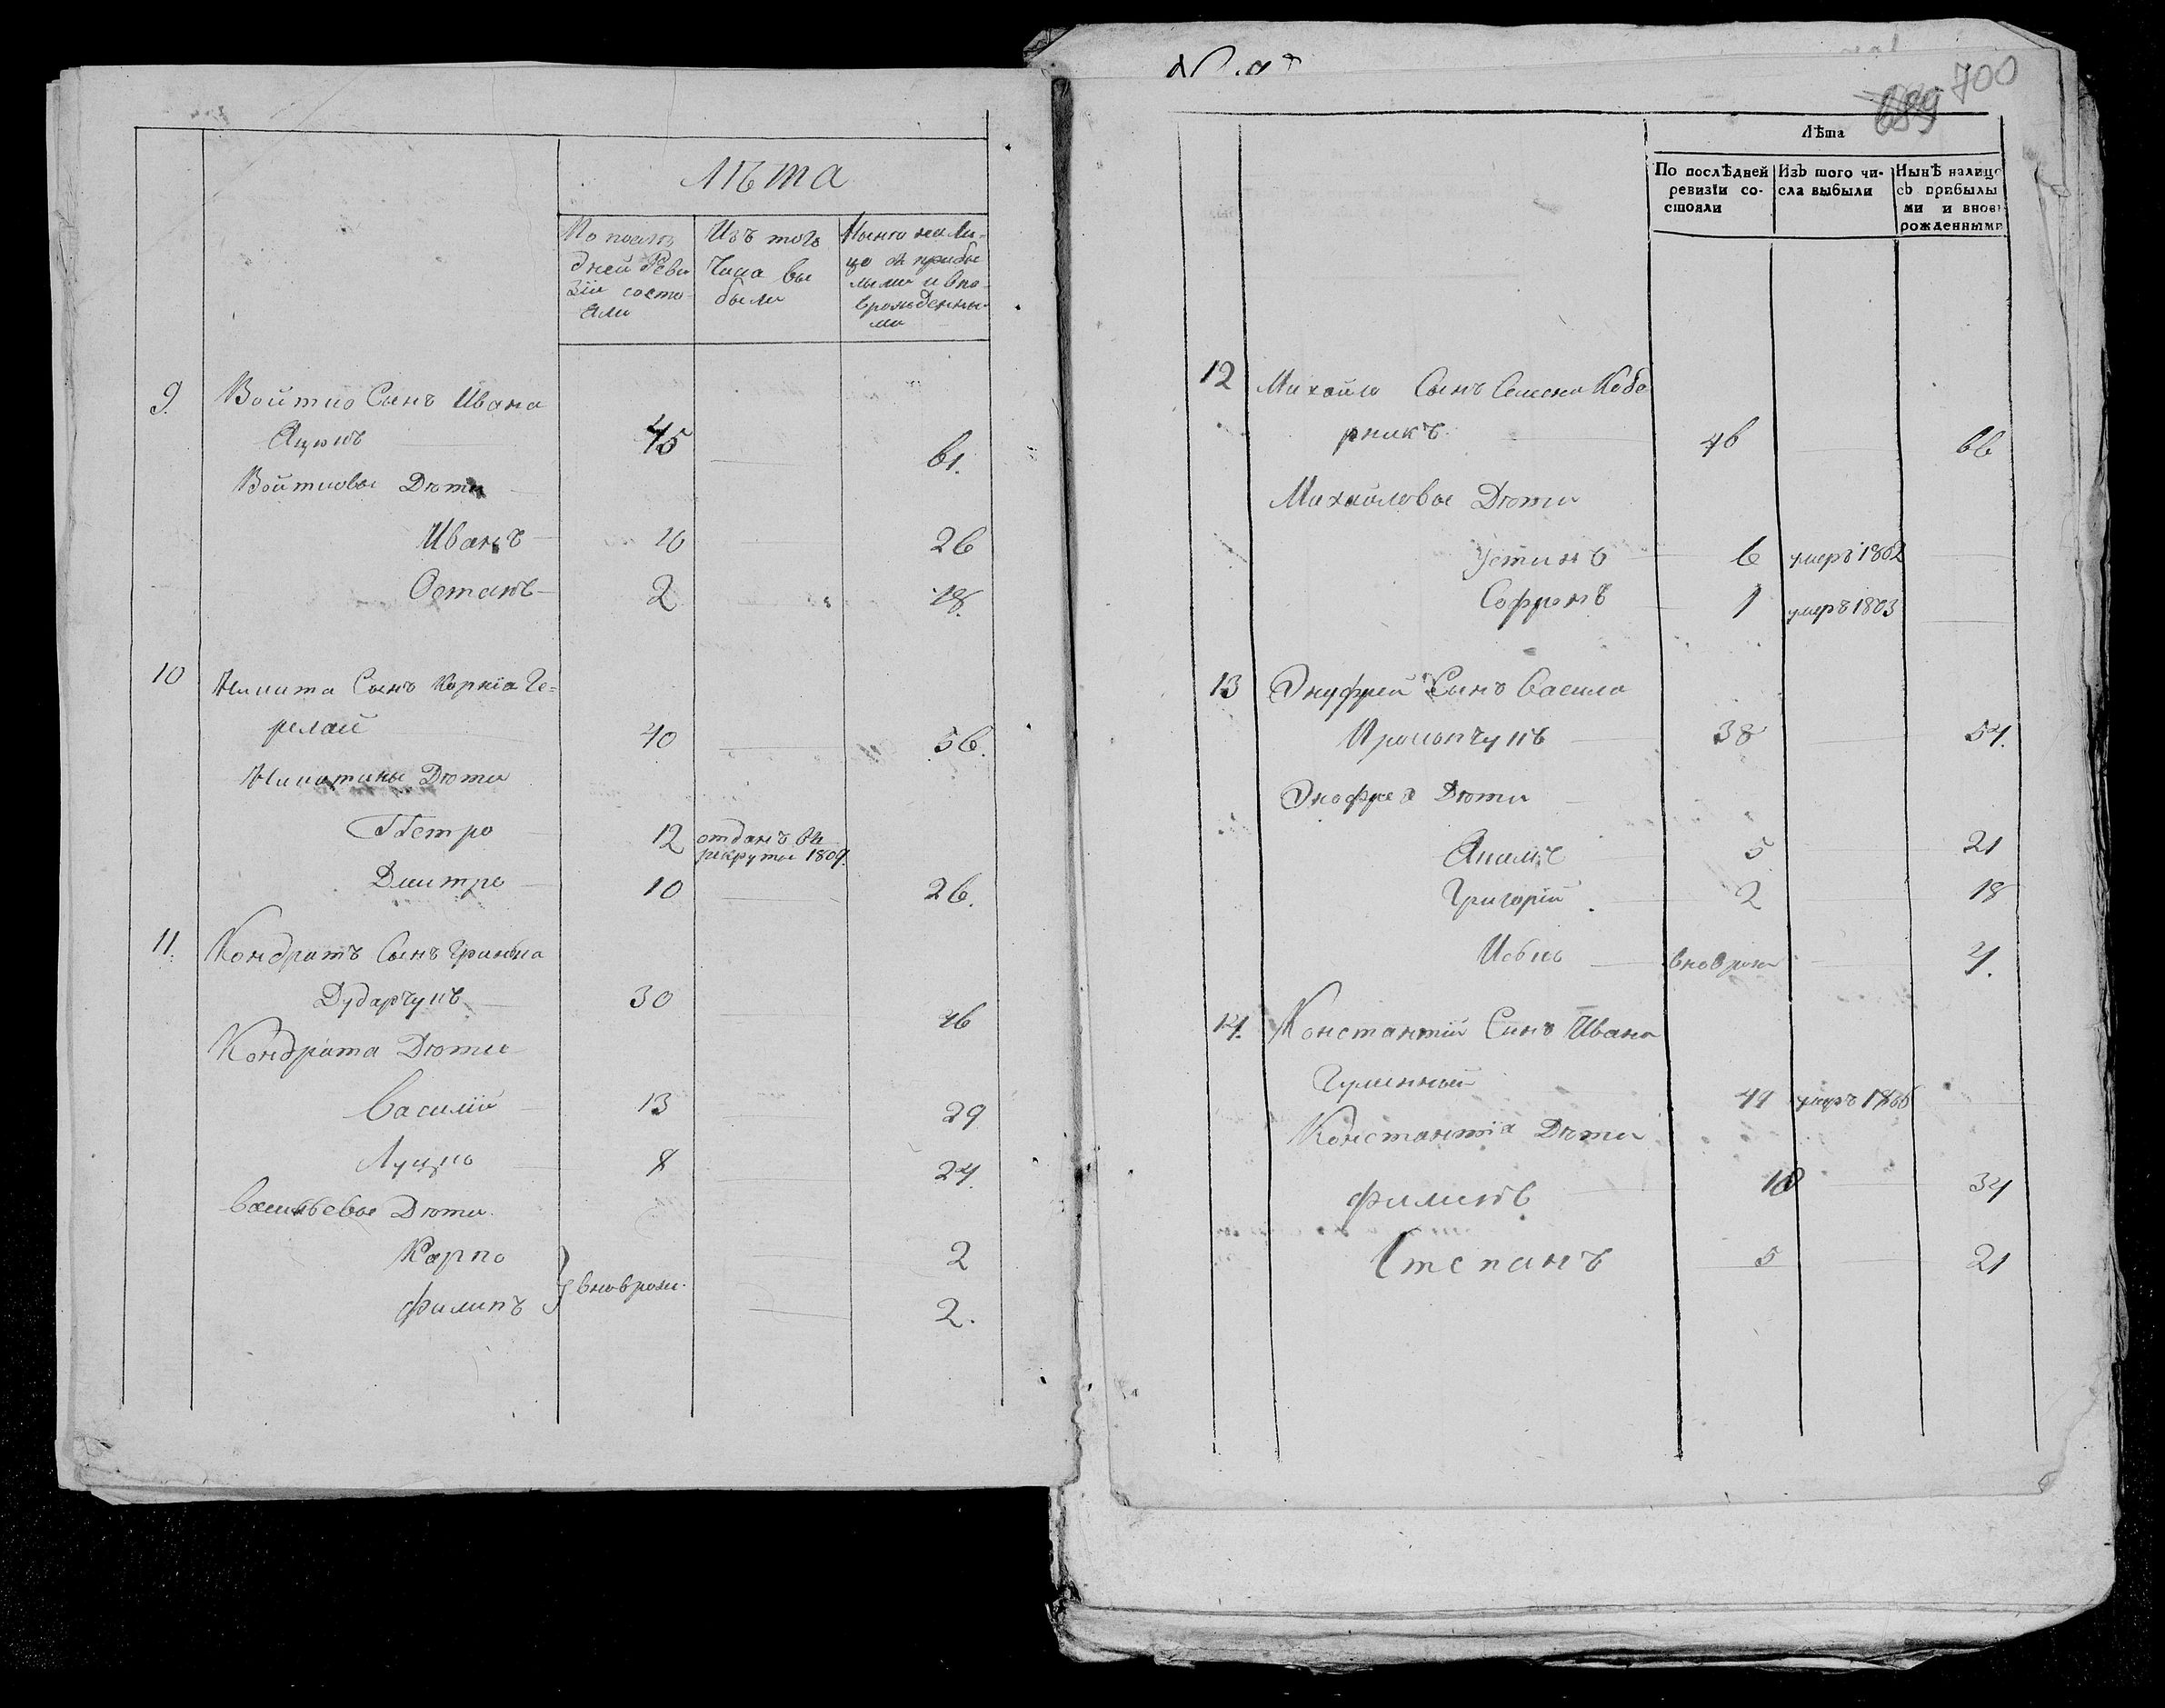 Лѣта
По послѣ
дней Реви
зіи состо
яли
Изъ того
Числа вы
были
Нынѣ на ли-
цо съ прибы
лыми и вно-
врожденны-
ми
9. Войтко Сынъ Ивана
45 61.
Войтковы Дѣти
Иванъ 10 26
Остапъ 2 18.
10 Никита Сынъ Корнія Ге-
релай 40 56.
Никитины Дѣти
Петро 12 отданъ въ
рекруты 1809.
Дмитро 10 26.
11. Кондратъ Сынъ Гринька
Дударчукъ 30 46
Кондрата Дѣти
Василій 13 29
Луцко 8 24.
Васильевы Дѣти
Карпо 2
вновьрож.
Филипъ 2.
700
689
Лѣта
По послѣдней
ревизіи со-
стояли
Изъ того чи-
сла выбыли
Нынѣ налицо
съ прибылы
ми и вновь
рожденными
12 Михайло Сынъ Семена Кобе
рникъ 46 66
Михайловы Дѣти
Устинъ 6 умеръ 1802
Софронъ 1 умеръ 1803
13 Онуфрей Сынъ Василя
38 54.
Онофрея Дѣти
5 21
Григорій 2 18
вноврож 4.
14. Константій Сынъ Ивана
Гуменный 44 умеръ 1806
Константія Дѣти
Филипъ 18 34
Степанъ 5 21